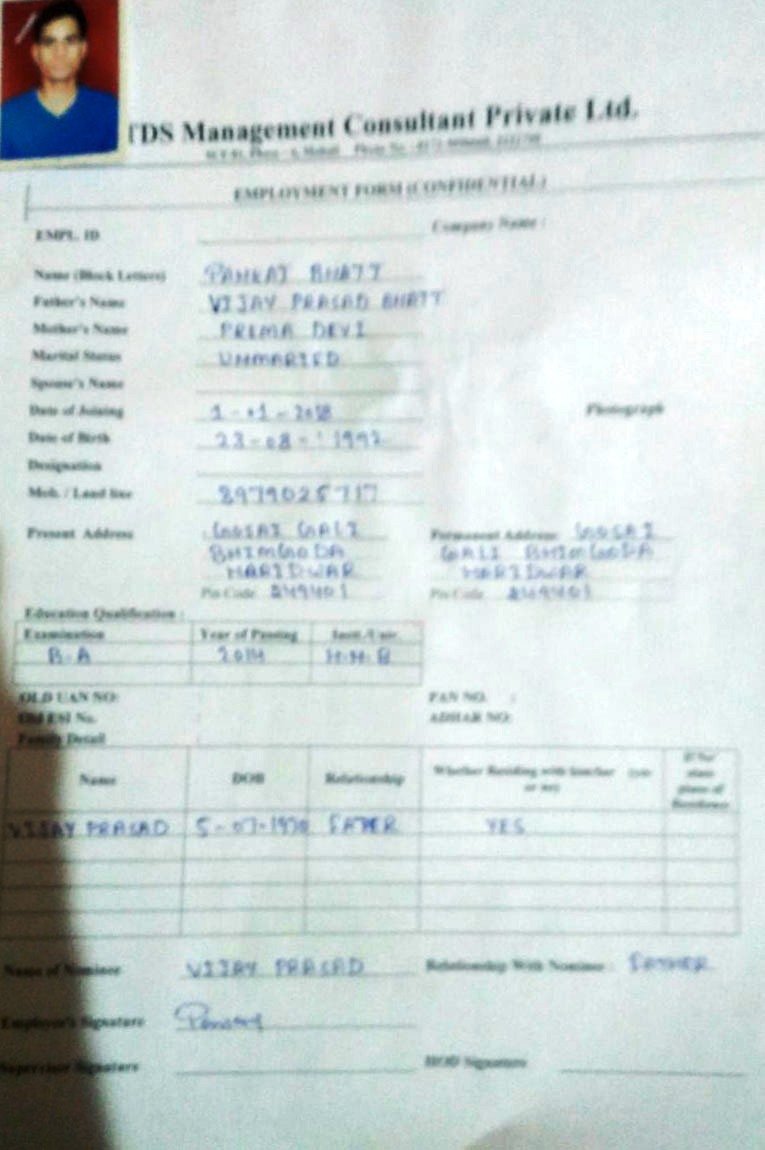 TDS Management Consultant Private Ltd.
EMPLOYMENT FORM (CONFIDENTIAL)
EMPL. ID Company Name :
Name (Block Letters) PANKAJ BHATT
Father's Name VIJAY PRASAD BHATT
Mother's Name PREMA DEVI
Marital Status UNMARIED
Spouse's Name
Date of Joining 1-01-2018 Photograph
Date of Birth 23-08-1992
Designation
Mob. / Land line 8979025717
Present Address GOSAI GALI Permanent Address GOSAI
BHIMGODA GALI BHIMGODA
HARIDWAR HARIDWAR
Pin Code 249401 Pin Code 249401
Education Qualification :
Examination Year of Passing Instt./Univ.
B.A 2014 H.N.B
OLD UAN NO: PAN NO. :
Old ESI No. : ADHAR NO:
Family Detail :
Name DOB Relationship Whether Residing with him/her
VIJAY PRASAD 5-07-1970 FATER YES
Name of Nominee VIJAY PRASAD Relationship With Nominee : FATHER
Employee's Signature Pankaj
Supervisor Signature HOD Signature